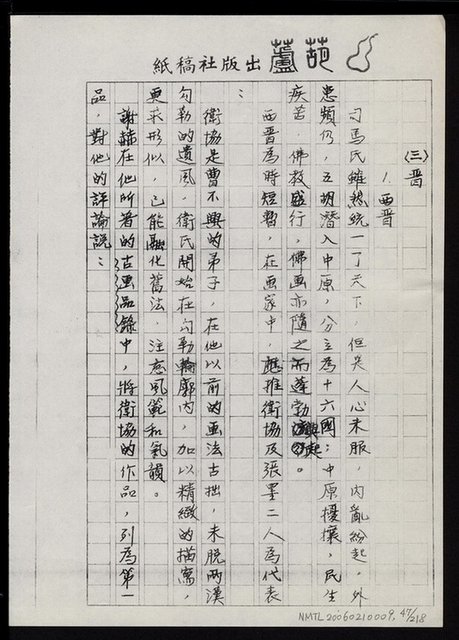 葫蘆出版社稿紙
㈢晉
1.西晉
司馬氏雖然統一了天下，但失人心未服，內亂紛起，外
患頻仍，五胡潛入中原，分立為十六國；中原擾攘，民生
疾苦，佛教盛行，佛画亦隨之而蓬勃興起。
西晉為時短暫，在画家中，應推衛協及張墨二人為代表
：
衛協是曹不興的弟子，在他以前的画法古拙，未脫兩漢
勾勒的遺風，衛氏開始在勾勒輪廓內，加以精緻的描寫，
更求形似，已能融化舊法，注意風範和氣韻。
謝赫在他所著的古画品錄中，將衛協的作品，列為第一
品，對他的評論說：
NMTL20060210009, 47/218